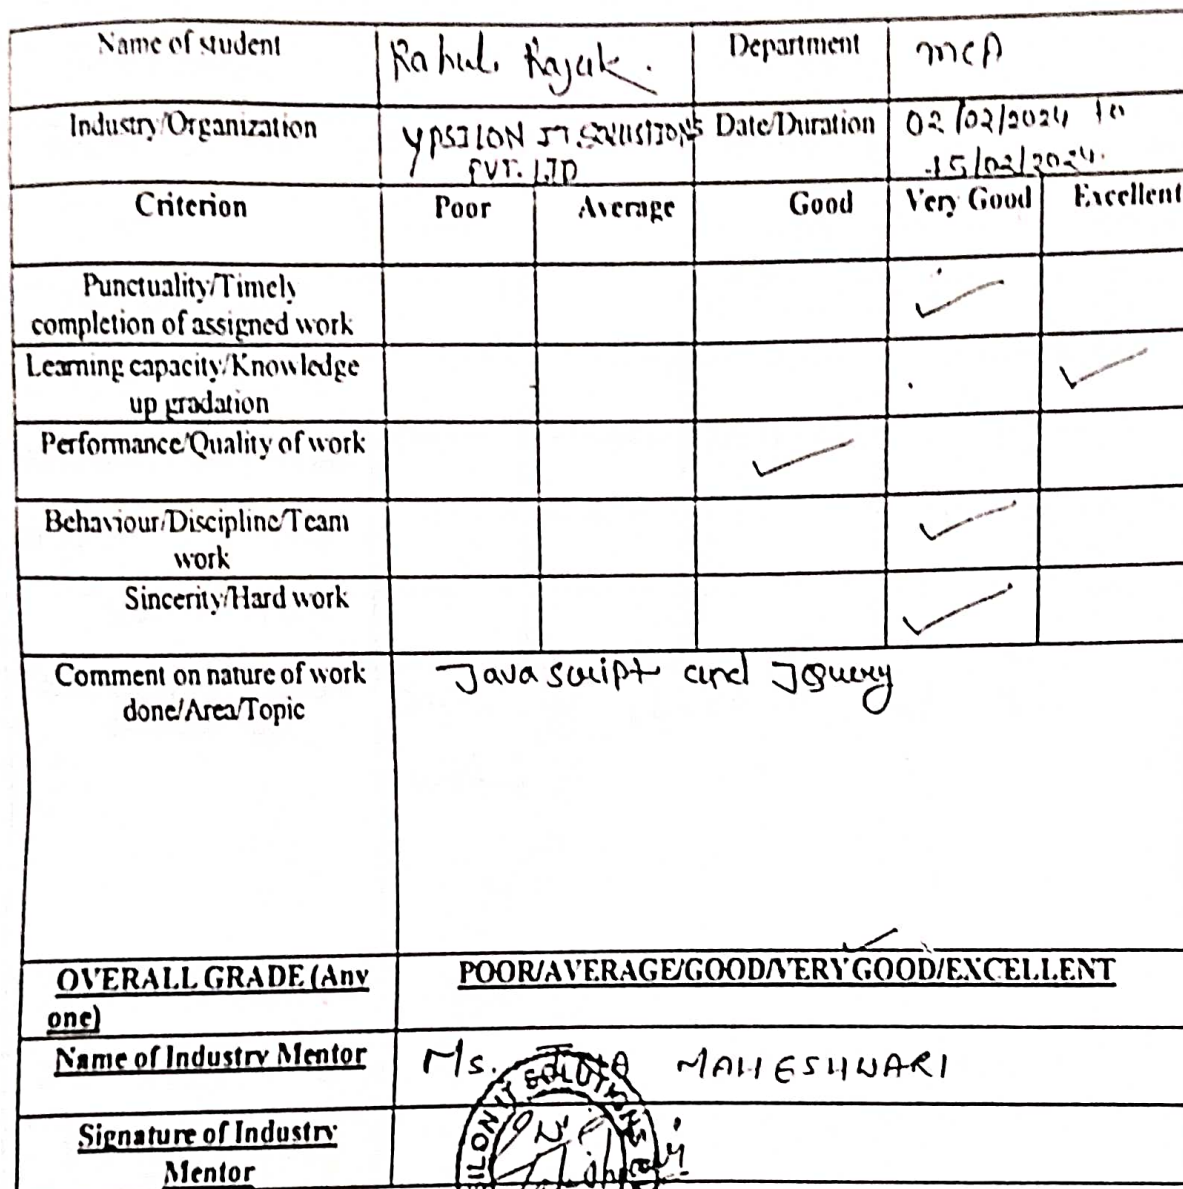 Name of student Rahul Rajak. Department MCA
Industry/Organization YPSILON IT SOLUSTIONS Date/Duration 02/02/2024 to
PVT. LTD 15/02/2024.
Criterion Poor Average Good Very Good Excellent
Punctuality/Timely
completion of assigned work
Learning capacity/Knowledge
up gradation
Performance/Quality of work
Behaviour/Discipline/Team
work
Sincerity/Hard work
Comment on nature of work Javascript and JQuery
done/Area/Topic
OVERALL GRADE (Any POOR/AVERAGE/GOOD/VERY GOOD/EXCELLENT
one)
Name of Industry Mentor Ms. MAHESHWARI
ILON IT SOLUTIONS
Signature of Industry
Mentor